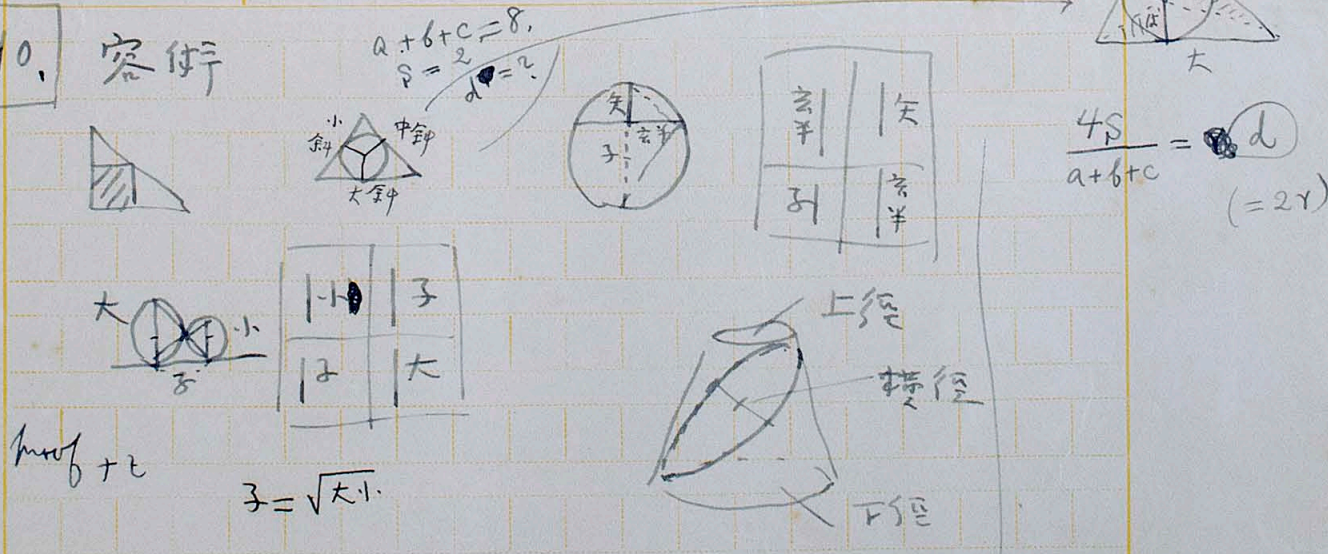 0.
容術
a+b+c=8.
S=2
d=?
大
小斜
中斜
大斜
矢
玄半
子
玄半 矢
子 玄半
4S/(a+b+c) = d
(=2r)
大
小
子
小 子
子 大
上径
横径
下径
proof
子=√大小